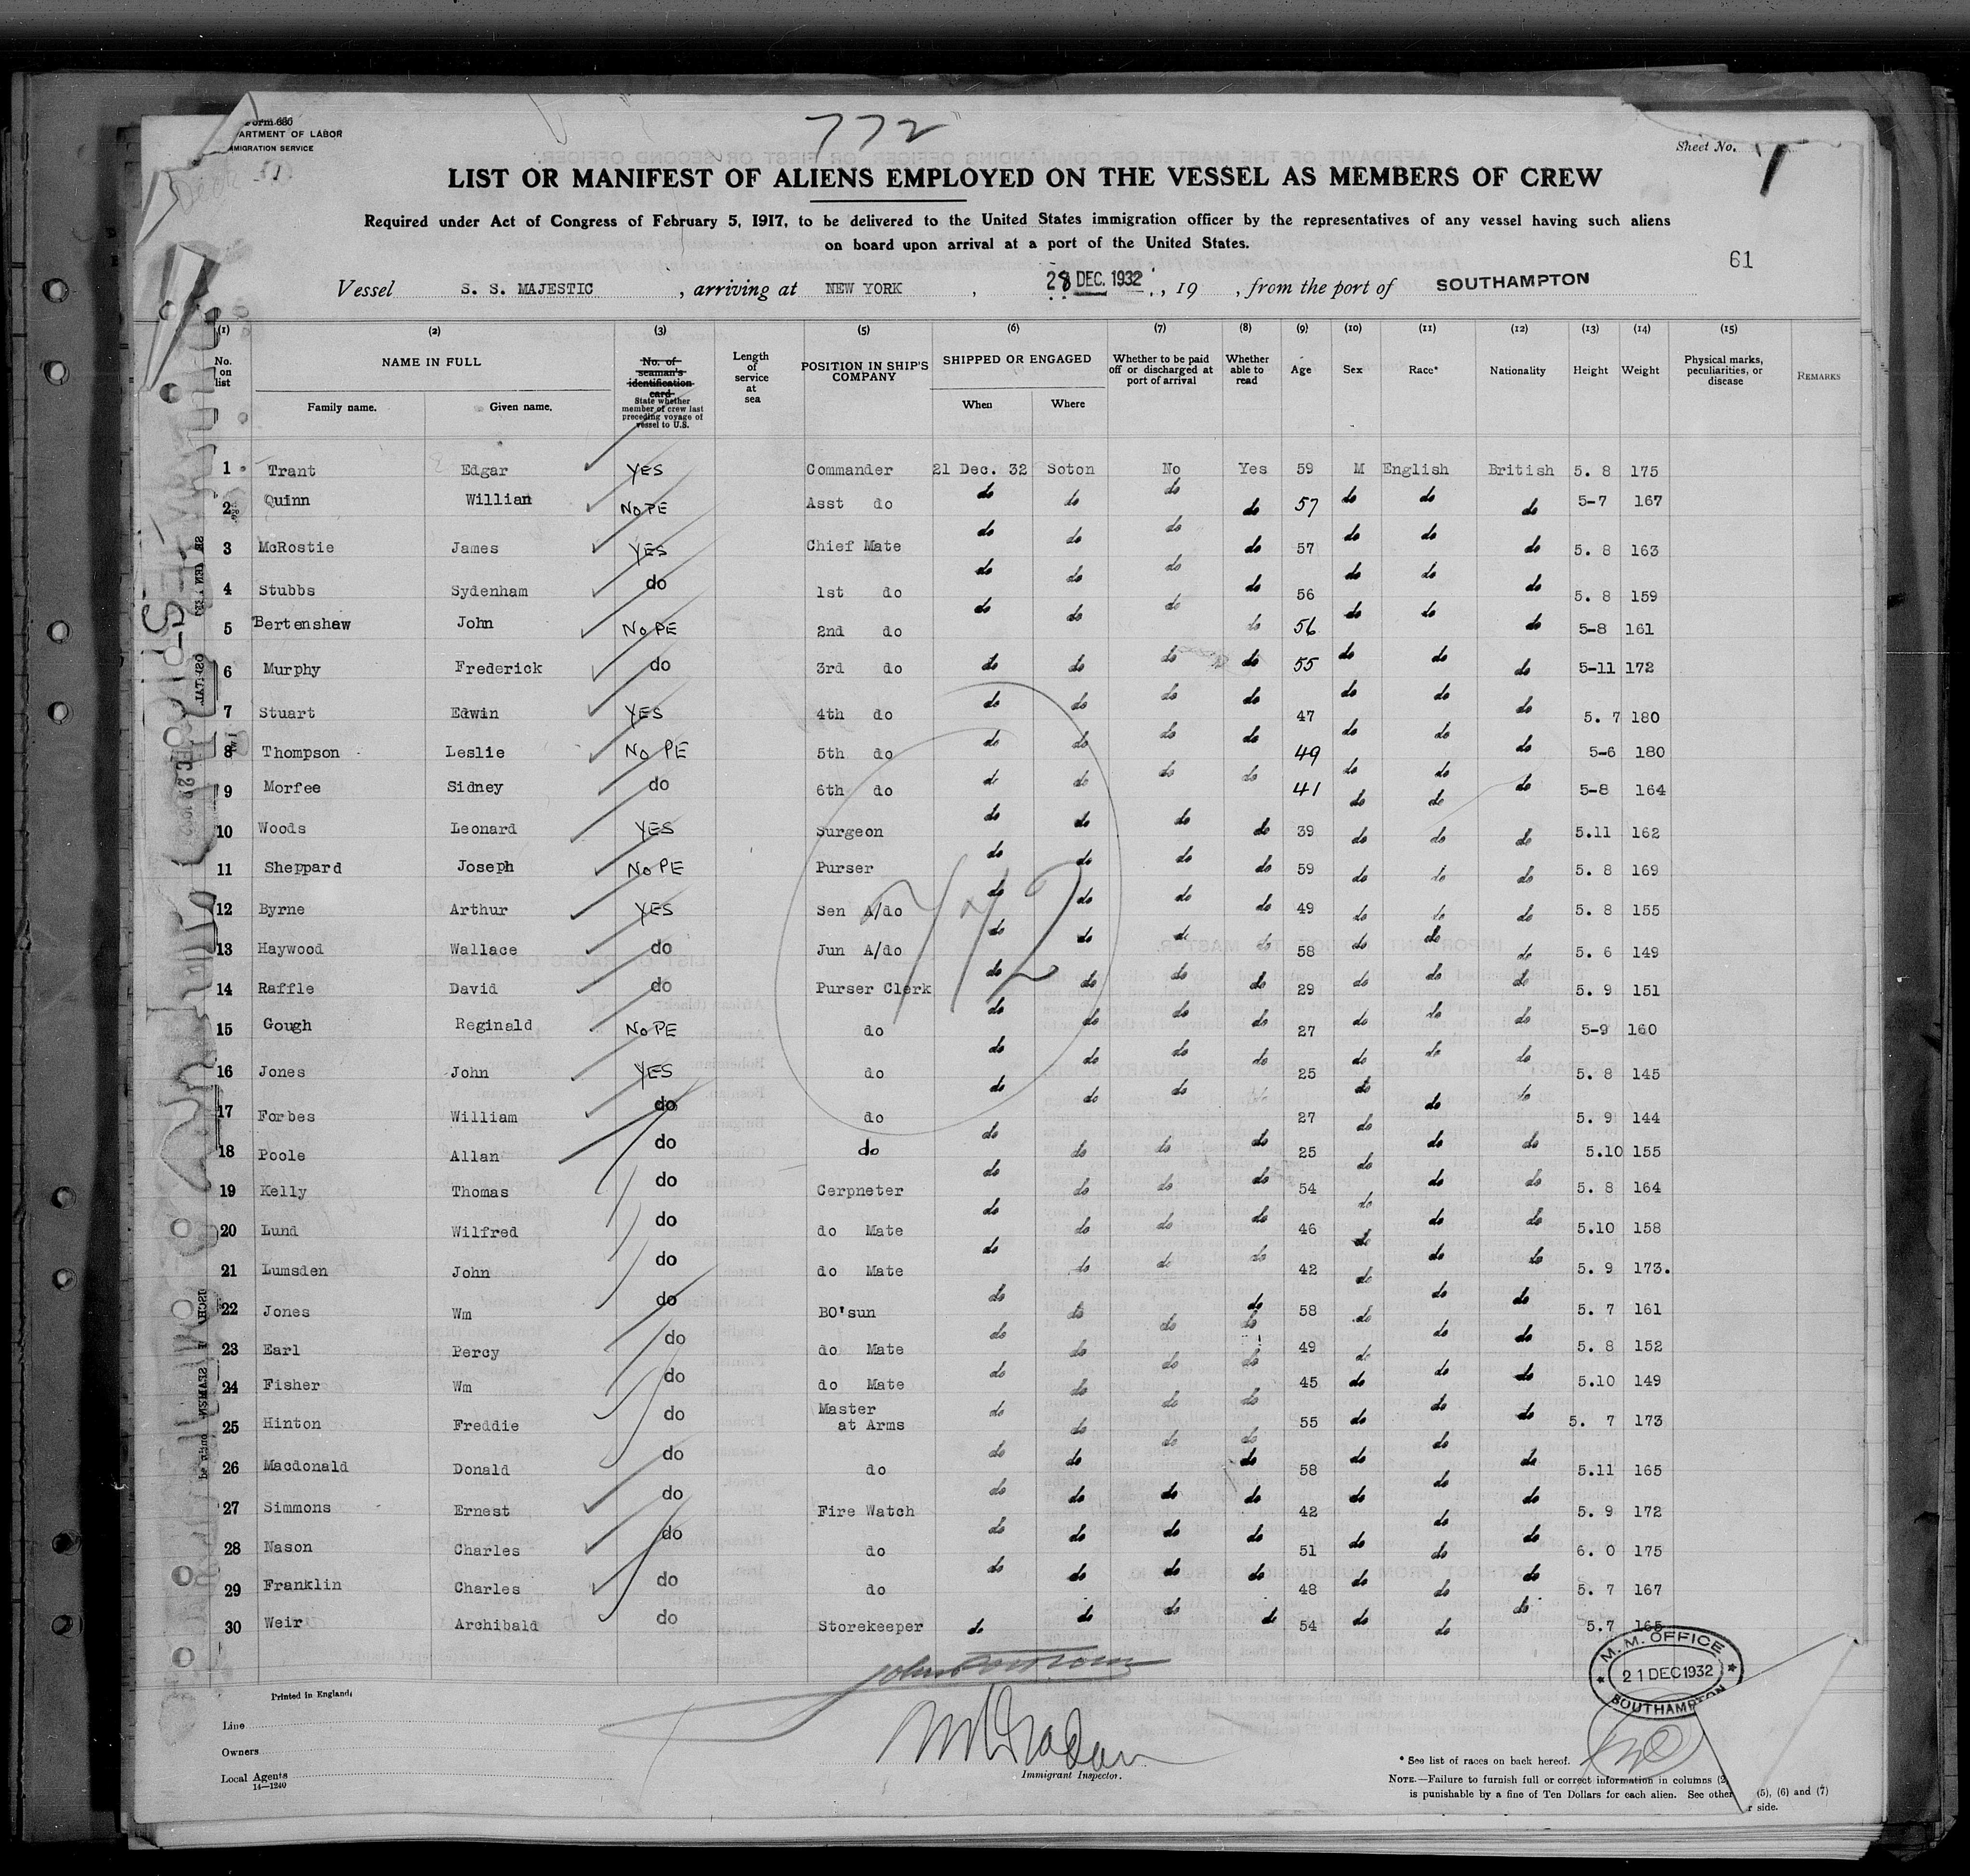 Form 680
ARTMENT OF LABOR
MMIGRATION SERVICE
772
Sheet No. 1
LIST OR MANIFEST OF ALIENS EMPLOYED ON THE VESSEL AS MEMBERS OF CREW
Required under Act of Congress of February 5, 1917, to be delivered to the United States immigration officer by the representatives of any vessel having such aliens
on board upon arrival at a port of the United States.
61
Vessel S. S. MAJESTIC , arriving at NEW YORK , 28 DEC. 1932 , 19 , from the port of SOUTHAMPTON
(1) (2) (3) (5) (6) (7) (8) (9) (10) (11) (12) (13) (14) (15)
No. on list NAME IN FULL Family name. Given name. No. of seaman's identification card State whether member of crew last preceding voyage of vessel to U.S. Length of service at sea POSITION IN SHIP'S COMPANY SHIPPED OR ENGAGED When Where Whether to be paid off or discharged at port of arrival Whether able to read Age Sex Race* Nationality Height Weight Physical marks, peculiarities, or disease REMARKS
1 Trant Edgar YES Commander 21 Dec. 32 Soton No Yes 59 M English British 5. 8 175
2 Quinn Willian NOPE Asst do do do do do 57 do do do 5-7 167
3 McRostie James YES Chief Mate do do do do 57 do do do 5. 8 163
4 Stubbs Sydenham do 1st do do do do do 56 do do do 5. 8 159
5 Bertenshaw John NOPE 2nd do do do do do 56 do do do 5-8 161
6 Murphy Frederick do 3rd do do do do do 55 do do do 5-11 172
7 Stuart Edwin YES 4th do do do do do 47 do do do 5. 7 180
8 Thompson Leslie NO PE 5th do do do do do 49 do do do 5-6 180
9 Morfee Sidney do 6th do do do do do 41 do do do 5-8 164
10 Woods Leonard YES Surgeon do do do do 39 do do do 5.11 162
11 Sheppard Joseph NOPE Purser do do do do 59 do do do 5. 8 169
12 Byrne Arthur YES Sen A/do do do do do 49 do do do 5. 8 155
13 Haywood Wallace do Jun A/do do do do do 58 do do do 5. 6 149
14 Raffle David do Purser Clerk do do do do 29 do do do 5. 9 151
15 Gough Reginald NOPE do do do do do 27 do do do 5-9 160
16 Jones John YES do do do do do 25 do do do 5. 8 145
17 Forbes William do do do do do do 27 do do do 5. 9 144
18 Poole Allan do do do do do do 25 do do do 5.10 155
19 Kelly Thomas do Cerpneter do do do do 54 do do do 5. 8 164
20 Lund Wilfred do do Mate do do do do 46 do do do 5.10 158
21 Lumsden John do do Mate do do do do 42 do do do 5. 9 173.
22 Jones Wm do BO'sun do do do do 58 do do do 5. 7 161
23 Earl Percy do do Mate do do do do 49 do do do 5. 8 152
24 Fisher Wm do do Mate do do do do 45 do do do 5.10 149
25 Hinton Freddie do Master at Arms do do do do 55 do do do 5. 7 173
26 Macdonald Donald do do do do do do 58 do do do 5.11 165
27 Simmons Ernest do Fire Watch do do do do 42 do do do 5. 9 172
28 Nason Charles do do do do do do 51 do do do 6. 0 175
29 Franklin Charles do do do do do do 48 do do do 5. 7 167
30 Weir Archibald do Storekeeper do do do do 54 do do do 5.7 165
772
M. M. OFFICE
21 DEC 1932
SOUTHAMPTON
Printed in England
Line
Owners
Local Agents
14—1240
Immigrant Inspector.
* See list of races on back hereof.
NOTE.—Failure to furnish full or correct information in columns (2 (5), (6) and (7)
is punishable by a fine of Ten Dollars for each alien. See other r side.